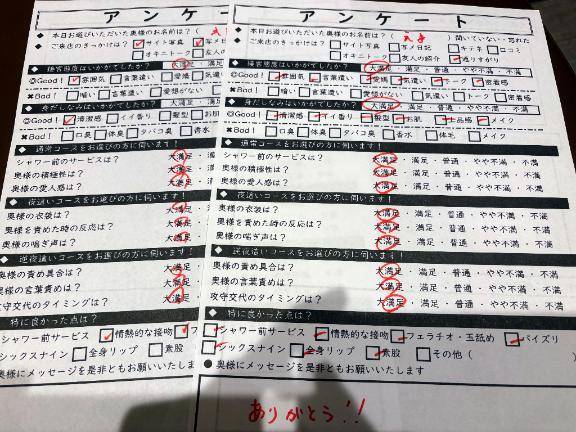 アンケ
アンケート
◆ 本日お遊びいただいた奥様のお名前は？（
◆ ご来店のきっかけは？ サイト写真 写メ日
オキニトーク 友人の
◆ 接客態度はいかがでしたか？ 大満足
◎Good！ 雰囲気 言葉遣い 愛嬌 気遣
✖Bad！ 暗い 言葉遣い 愛想がない
◆ 身だしなみはいかがでしたか？ 大満足
◎Good！ 清潔感 イイ香り 髪型 お肌
✖Bad！ 口臭 体臭 タバコ臭 香水
◆ 通常コースをお選びの方に伺います！
シャワー前のサービスは？ 大満足
奥様の積極性は？ 大満足
奥様の愛人感は？ 大満足
◆ 夜這いコースをお選びの方に伺います！
奥様の衣装は？ 大満足
奥様を責めた時の反応は？ 大満足
奥様の喘ぎ声は？ 大満足
◆ 逆夜這いコースをお選びの方に伺います！
奥様の責め具合は？ 大満足
奥様の言葉責めは？ 大満足
攻守交代のタイミングは？ 大満足
◆ 特に良かった点は？
シャワー前サービス 情熱的な接吻
シックスナイン 全身リップ 素股
奥様にメッセージを是非ともお願いいたしま
◆ 本日お遊びいただいた奥様のお名前は？（ ）聞いていない・忘れた
◆ ご来店のきっかけは？ サイト写真 写メ日記 キテネ 口コミ
オキニトーク 友人の紹介 通りすがり
◆ 接客態度はいかがでしたか？ 大満足・満足・普通・やや不満・不満
◎Good！ 雰囲気 言葉遣い 愛嬌 気遣い トーク 密着感
✖Bad！ 暗い 言葉遣い 愛想がない 気遣い トーク 密着感
◆ 身だしなみはいかがでしたか？ 大満足・満足・普通・やや不満・不満
◎Good！ 清潔感 イイ香り 髪型 お肌 上品感 メイク
✖Bad！ 口臭 体臭 タバコ臭 香水 体毛 メイク
◆ 通常コースをお選びの方に伺います！
シャワー前のサービスは？ 大満足・満足・普通・やや不満・不満
奥様の積極性は？ 大満足・満足・普通・やや不満・不満
奥様の愛人感は？ 大満足・満足・普通・やや不満・不満
◆ 夜這いコースをお選びの方に伺います！
奥様の衣装は？ 大満足・満足・普通・やや不満・不満
奥様を責めた時の反応は？ 大満足・満足・普通・やや不満・不満
奥様の喘ぎ声は？ 大満足・満足・普通・やや不満・不満
◆ 逆夜這いコースをお選びの方に伺います！
奥様の責め具合は？ 大満足・満足・普通・やや不満・不満
奥様の言葉責めは？ 大満足・満足・普通・やや不満・不満
攻守交代のタイミングは？ 大満足・満足・普通・やや不満・不満
◆ 特に良かった点は？
シャワー前サービス 情熱的な接吻 フェラチオ・玉舐め パイズリ
シックスナイン 全身リップ 素股 その他（ ）
● 奥様にメッセージを是非ともお願いいたします
ありがとう!!